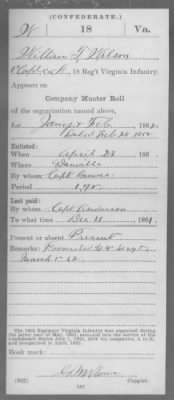 (CONFEDERATE.)
W 18 Va.
William T. Wilson
, 18 Reg't Virginia Infantry.
Appears on
Company Muster Roll
of the organization named above,
for Jany & Feb, 1862.
dated Feb 28 1862
Enlisted:
When April 23, 186
Where Danville
By whom Capt Graves
Period 1 yr.
Last paid:
By whom Capt Anderson
To what time Dec 31, 1861.
Present or absent Present
Remarks: Promoted to 4" Sergt
March 1" 62
The 18th Regiment Virginia Infantry was organized during
the latter part of May, 1861; accepted into the service of the
Confederate States July 1, 1861, with ten companies, A to K,
and reorganized in April, 1862.
Book mark:
(642) Copyist.